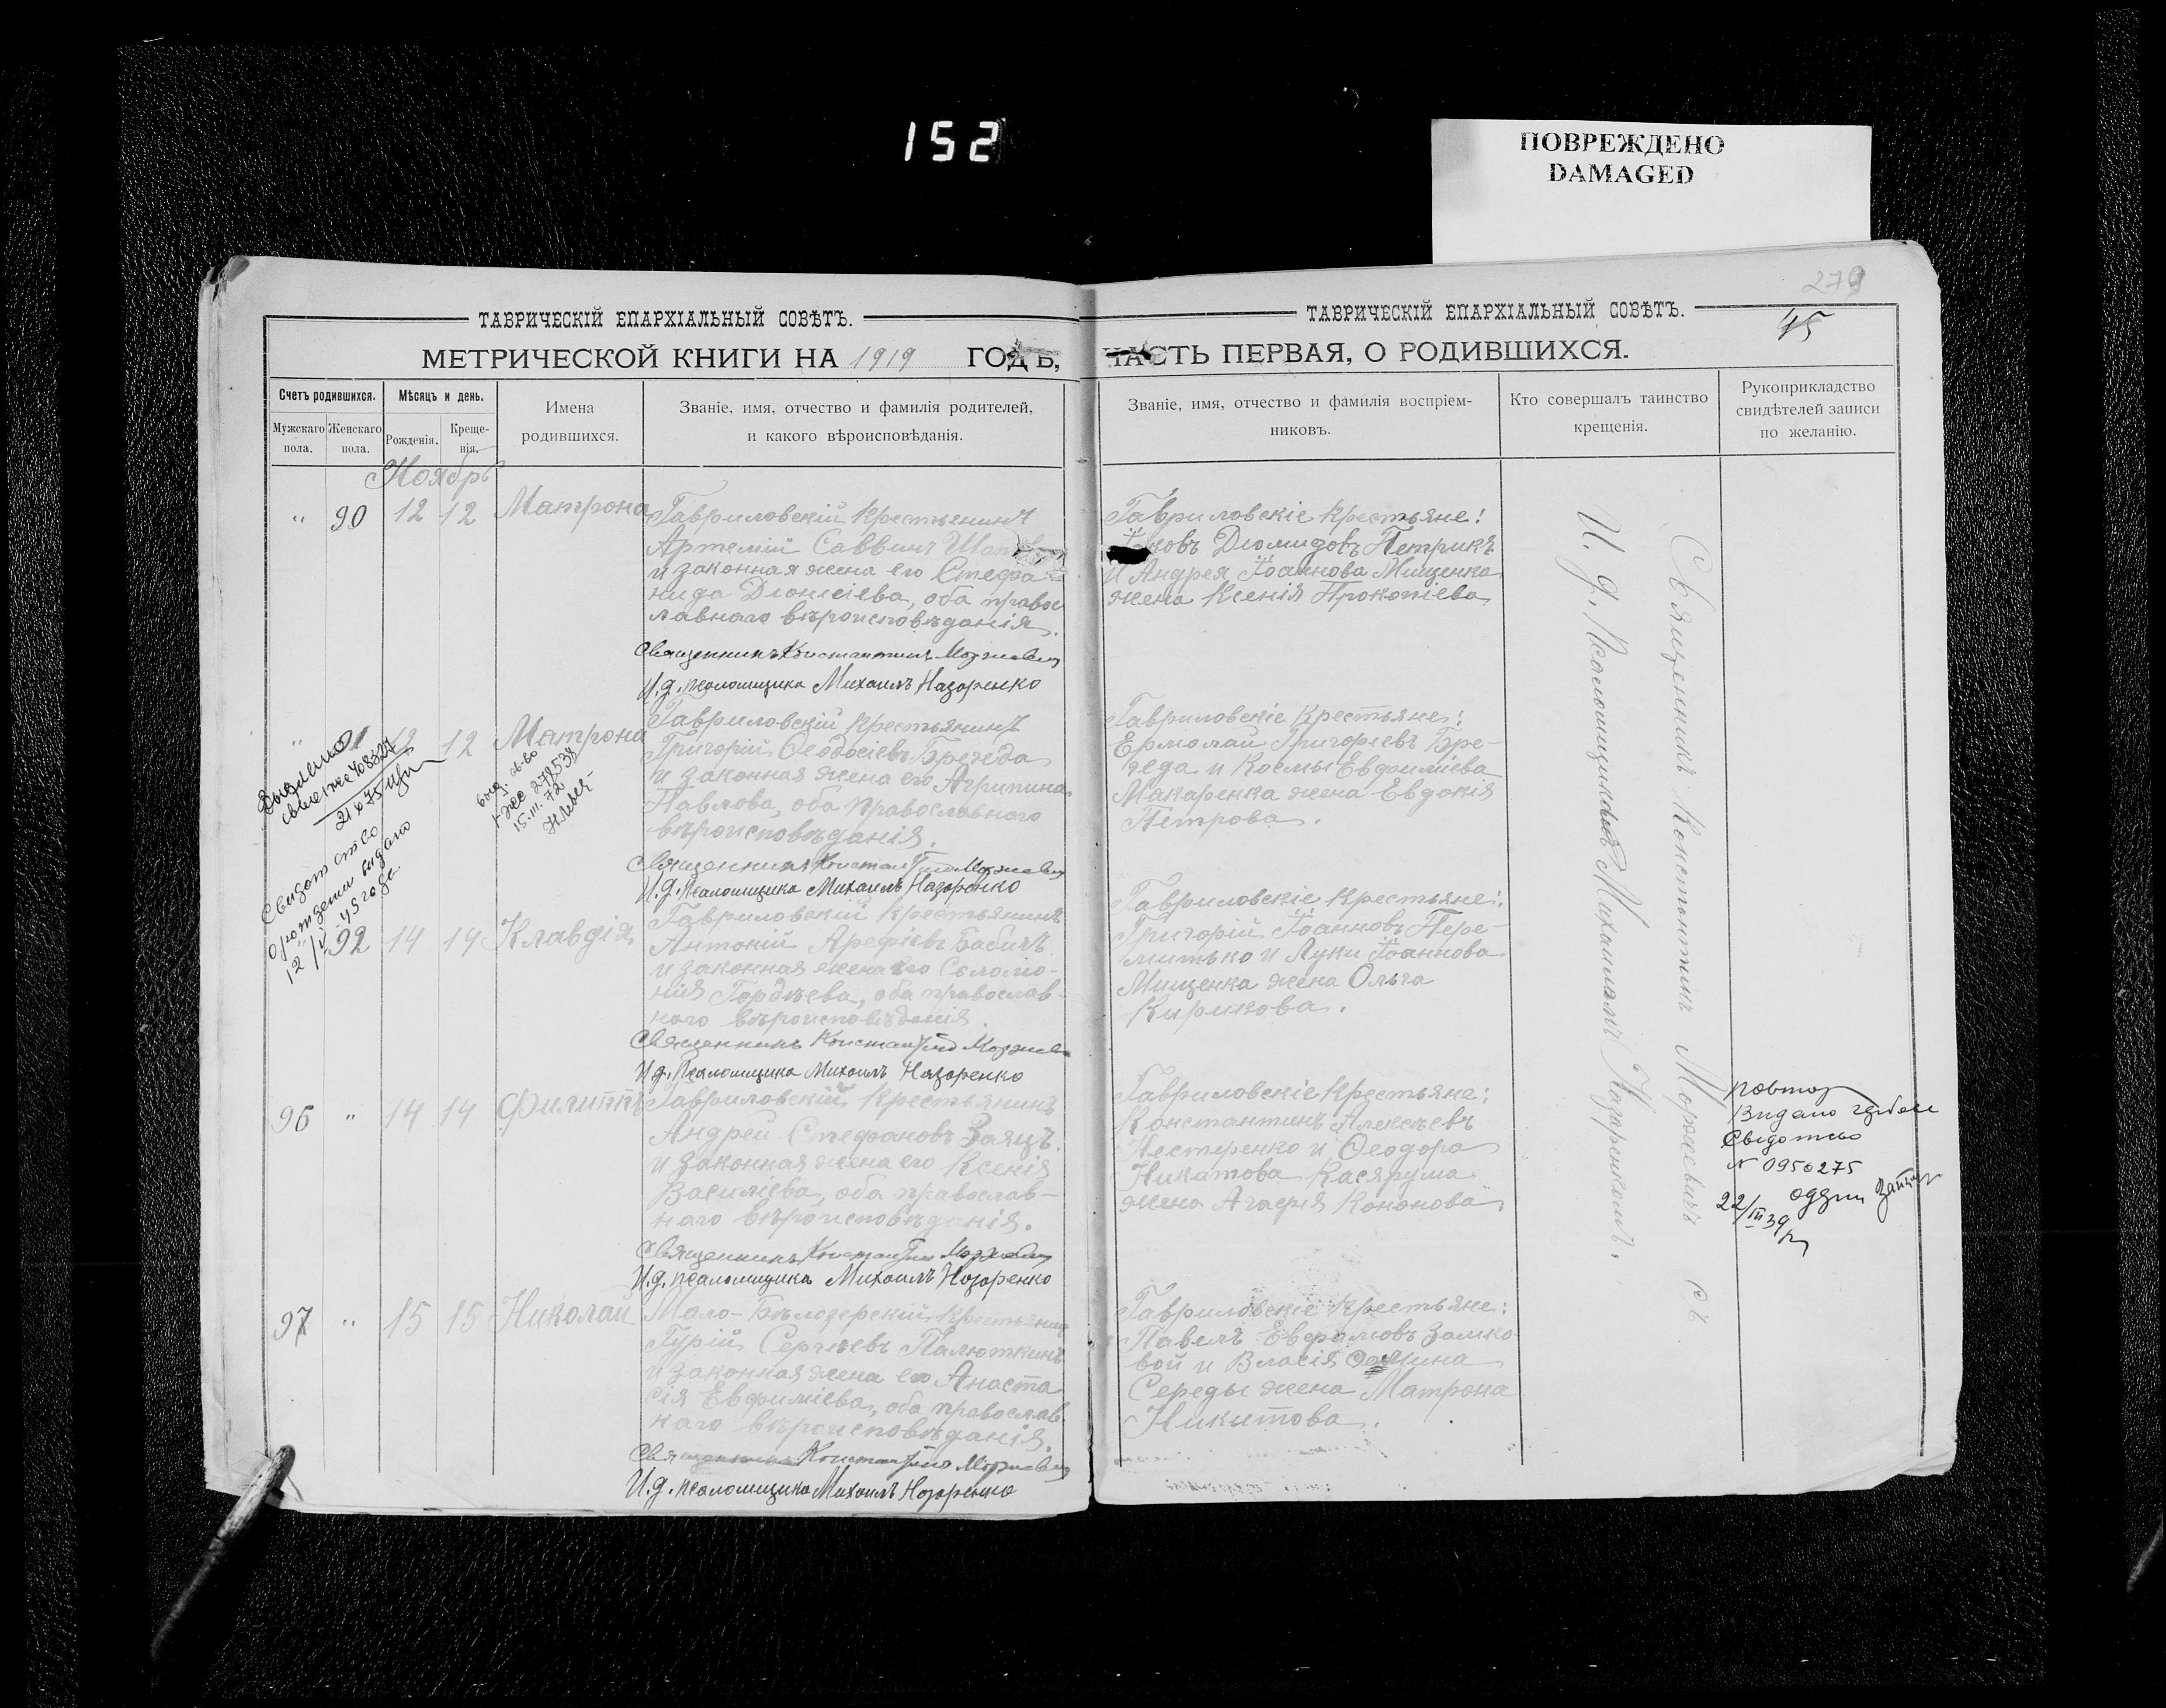 152
ПОВРЕЖДЕНО
DAMAGED
279
45
ТАВРИЧЕСКІЙ ЕПАРХІАЛЬНЫЙ СОВѢТЪ.
МЕТРИЧЕСКОЙ КНИГИ НА 1919 ГОДЪ,
Счетъ родившихся.
Мужскаго пола.
Женскаго пола.
Мѣсяцъ и день.
Рожденія.
Креще-
нія.
Имена
родившихся.
Званіе, имя, отчество и фамилія родителей,
и какого вѣроисповѣданія.
Ноябрь
" 90 12 12 Матрона
Гавриловскій крестьянинъ
Артемій Саввинъ
и законная жена его Стефа-
нида Діонисіева, оба правос
лавнаго вѣроисповѣданія.
Священникъ Константинъ Моржевичъ
И.д. псаломщика Михаилъ Назаренко
" 91 12 12 Матрона
Гавриловскій крестьянинъ
Григорій Ѳеодосіевъ Брегеда
и законная жена его Агрипина
Павлова, оба православнаго
вѣроисповѣданія.
Священникъ Константинъ Моржевичъ
И.д. псаломщика Михаилъ Назаренко
15.III.72
12/V 45 года.
92 14 14 Клавдія
Гавриловскій крестьянинъ
Антоній Арефіевъ Бабичъ
и законная жена его Соломо-
нія Гордѣева, оба православ-
наго вѣроисповѣданія.
Священникъ Константинъ Моржевичъ
И.д. псаломщика Михаилъ Назаренко
96 " 14 14 Филиппъ
Гавриловскій крестьянинъ
Андрей Стефановъ Заяцъ
и законная жена его Ксенія
Василіева, оба православ-
наго вѣроисповѣданія.
Священникъ Константинъ Моржевичъ
И.д. псаломщика Михаилъ Назаренко
97 " 15 15 Николай
Мало-Бѣлозерскій крестьянинъ
Гурій Сергѣевъ Палюткинъ
и законная жена его Анаста
сія Евфиміева, оба православ
наго вѣроисповѣданія.
Священникъ Константинъ Моржевичъ
И.д. псаломщика Михаилъ Назаренко
ТАВРИЧЕСКІЙ ЕПАРХІАЛЬНЫЙ СОВѢТЪ.
ЧАСТЬ ПЕРВАЯ, О РОДИВШИХСЯ.
Званіе, имя, отчество и фамилія воспріем-
никовъ.
Кто совершалъ таинство
крещенія.
Рукоприкладство
свидѣтелей записи
по желанію.
Гавриловскіе крестьяне:
Діомидовъ Петрикъ
и Андрея Іоаннова Мищенка
жена Ксенія Прокопіева
Гавриловскіе крестьяне:
Ермолай Григоріевъ Бре-
геда и Космы Евфиміева
Макаренка жена Евдокія
Петрова.
Гавриловскіе крестьяне:
Григорій Іоанновъ Пере-
митько и Луки Іоаннова
Мищенка жена Ольга
Кирикова.
Гавриловскіе крестьяне:
Константинъ Алексѣевъ
Нестеренко и Ѳеодора
Никитова Касярума
жена Агафія Кононова
Гавриловскіе крестьяне:
Павелъ Евфимовъ Замко-
вой и Власія
Середы жена Матрона
Никитова.
Священникъ Константинъ Моржевичъ съ
И. д. Псаломщикомъ Михаиломъ Назаренкомъ.
Видано
N 0950275
22/III 39